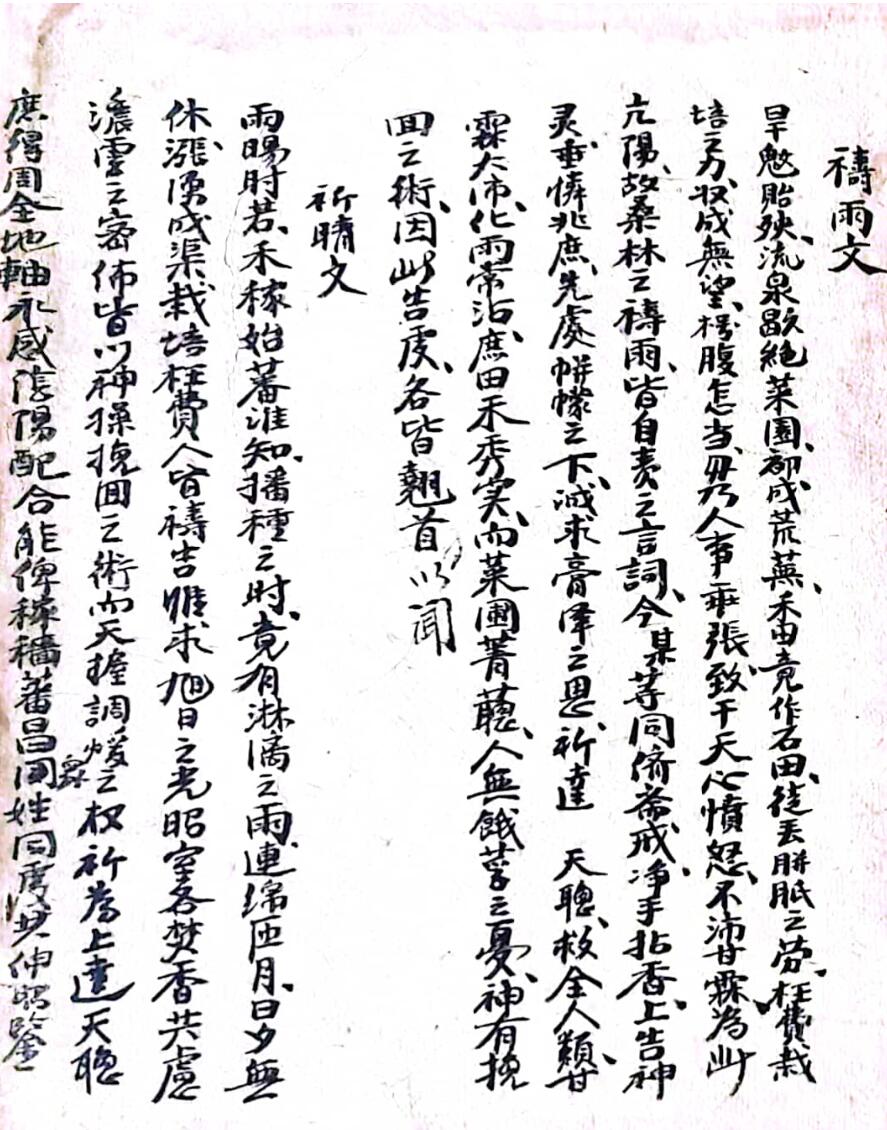 禱雨文
旱魃貽殃、流泉歇絕菜園、初成荒蕪、禾田竟作石田、徒丟胼胝之勞、枉費栽
培之力、收成無望、枵腹怎当、毋乃人事乖張、致干天心憤怒、不沛甘霖為此
亢陽、故桑林之禱雨、皆自責之言詞、今某等同儕斋戒、净手拈香、上告神
灵、垂憐兆庶、先處帡幪之下、諴求膏泽之恩、祈達 天聰、救全人類、甘
霖大沛、化雨常沾、庶田禾秀实、而菜圃菁蔥、人無餓莩之憂、神有挽
回之術、因此告虔、各皆翹首以闻
祈晴文
雨暘时若、禾稼始蕃、谁知播種之时、竟有淋漓之雨、連綿匝月、日夕無
休、漲溲成渠、栽培枉費、人皆禱告、惟求旭日之光昭、室各焚香、共慮
濃雲之密佈、皆以神操挽回之術、而天握調煖之权、祈為上達天聰
庶得周全地軸、永感陰陽配合、能俾稼穡蕃昌、闔姓同虔、共伸昭鑒